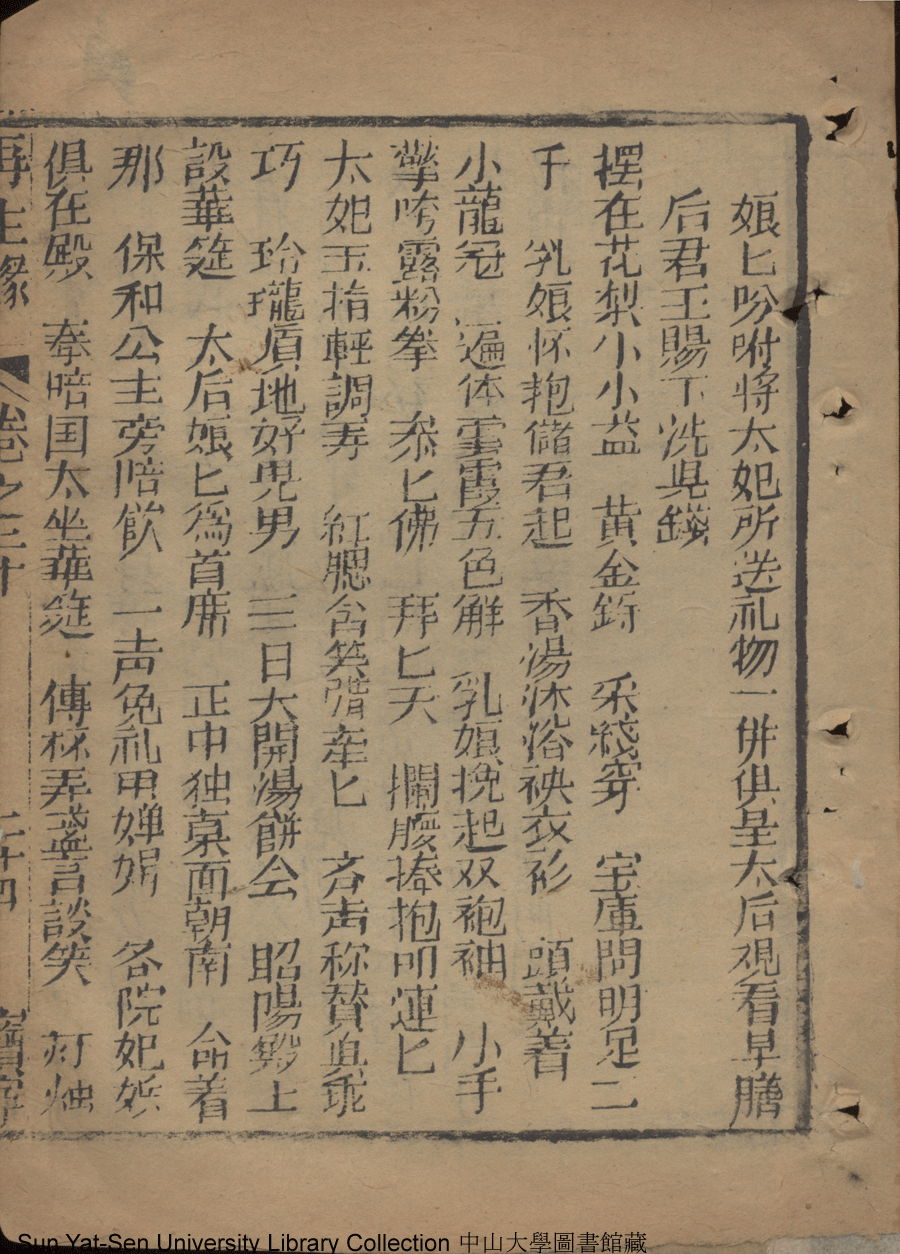 娘匕吩咐将太妃所送礼物一併俱呈太后覌看早膳
后君王賜下洗児錢
摆在花梨小小盆　黄金錚　采綫穿　宝庫問明足二
千　乳娘怀抱儲君起　香湯沐浴䄃衣衫　頭戴着
小龍冠　遍体雲霞五色鮮　乳娘挽起双袍袖　小手
擎咵露粉拳　叅匕佛　拜匕天　攔腰捧抱叩連匕
太妃玉指輕調弄　紅腮含笑㨪牽匕　吝声称賛真乖
巧　玲瓏眉地好児男　三日大開湯餅会　昭陽殿上
設華筵　太后娘匕為首席　正中独桌面朝南　命着
那　保和公主旁陪飲　一声免礼甲婵娟　各院妃嫔
俱在殿　奉陪国太坐華筵　傳杯弄盞言談笑　灯烛
再生緣　卷之三十　二十四　寳寧
Sun Yat-Sen University Library Collection 中山大學圖書館藏